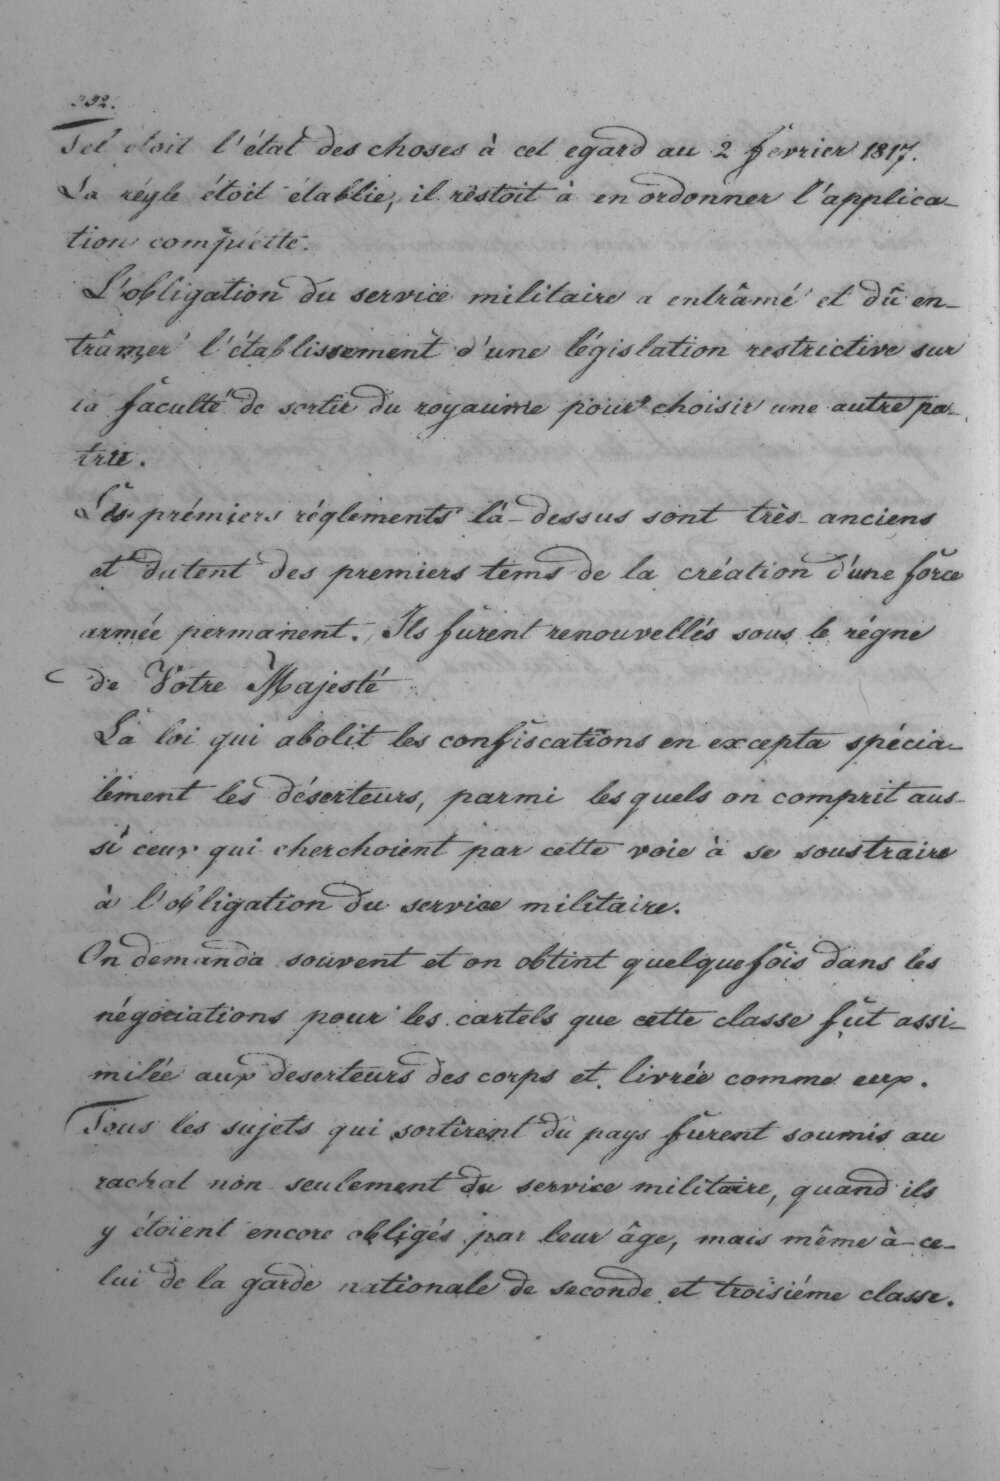 332.
Tel étoit l'état des choses à cet egard au 2 fevrier 1817.
La régle étoit établie, il restoit à en ordonner l'applica-
tion complette.
L'obligation du service militaire a entrâmé et dû en-
trâmer l'établissement d'une législation restrictive sur
la faculté de sortir du royaume pour choisir une autre pa-
trie.
Les prémiers réglements là-dessus sont très-anciens
et datent des premiers tems de la création d'une force
armée permanent. Ils furent renouvellés sous le régne
de Votre Majesté
La loi qui abolit les confiscations en excepta spécia-
lement les déserteurs, parmi les quels on comprit aus-
si ceux qui cherchoient par cette voie à se soustraire
à l'obligation du service militaire.
On demanda souvent et on obtint quelquefois dans les
négociations pour les cartels que cette classe fût assi-
milée aux deserteurs des corps et livrée comme eux.
Tous les sujets qui sortirent du pays furent soumis au
rachat non seulement du service militaire, quand ils
y étoient encore obligés par leur âge, mais même à ce-
lui de la garde nationale de seconde et troisiéme classe.